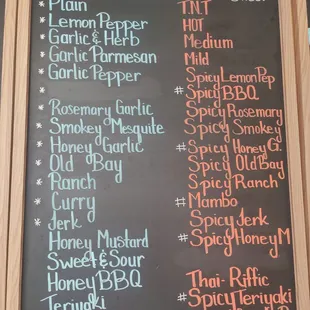 * Plain
* Lemon Pepper
* Garlic & Herb
* Garlic Parmesan
* Garlic Pepper
*
* Rosemary Garlic
* Smokey Mesquite
* Honey Garlic
* Old Bay
* Ranch
* Curry
* Jerk
Honey Mustard
Sweet & Sour
Honey BBQ
Teriyaki
T.N.T
HOT
Medium
Mild
Spicy Lemon Pep
# Spicy BBQ
Spicy Rosemary
Spicy Smokey
# Spicy Honey G.
Spicy Old Bay
Spicy Ranch
# Mambo
Spicy Jerk
# Spicy Honey M
Thai-Riffic
# Spicy Teriyaki